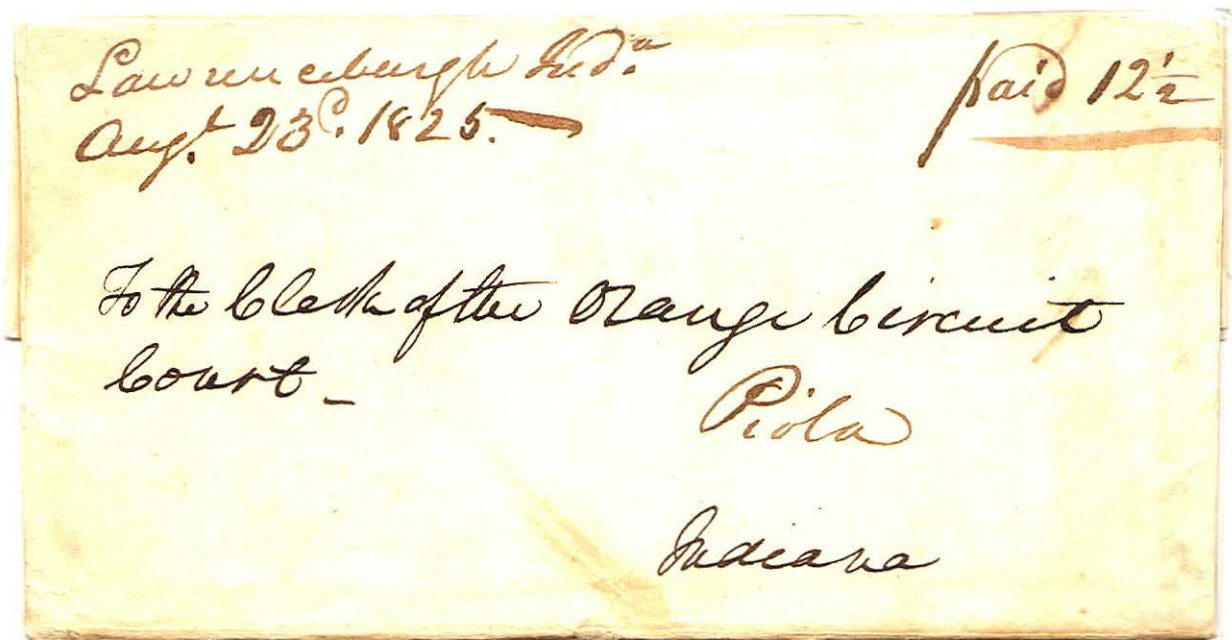 Lawrenceburgh Inda
Augt. 23d. 1825.
paid 12½
To the Clerk of the Orange Circuit
Court -
Piola
Indiana